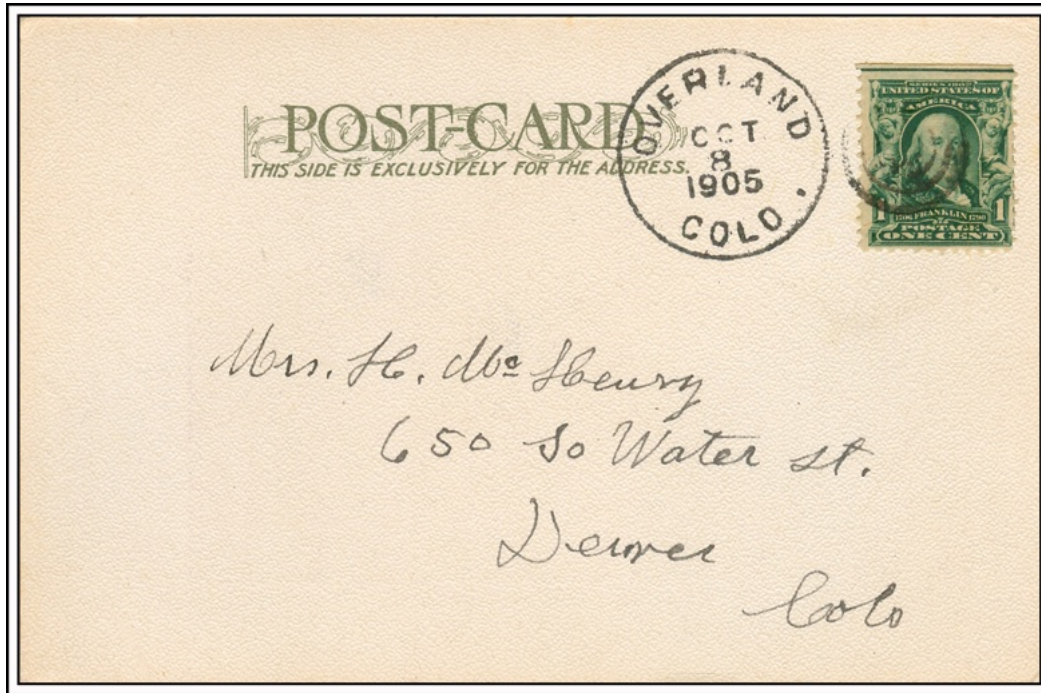 POST-CARD
THIS SIDE IS EXCLUSIVELY FOR THE ADDRESS.
OVERLAND
OCT
8
1905
COLO.
SERIES 1902
UNITED STATES OF
AMERICA
1 1706 FRANKLIN 1790 1
POSTAGE
ONE CENT
Mrs. H. Mc Henry
650 So Water st.
Denver
Colo